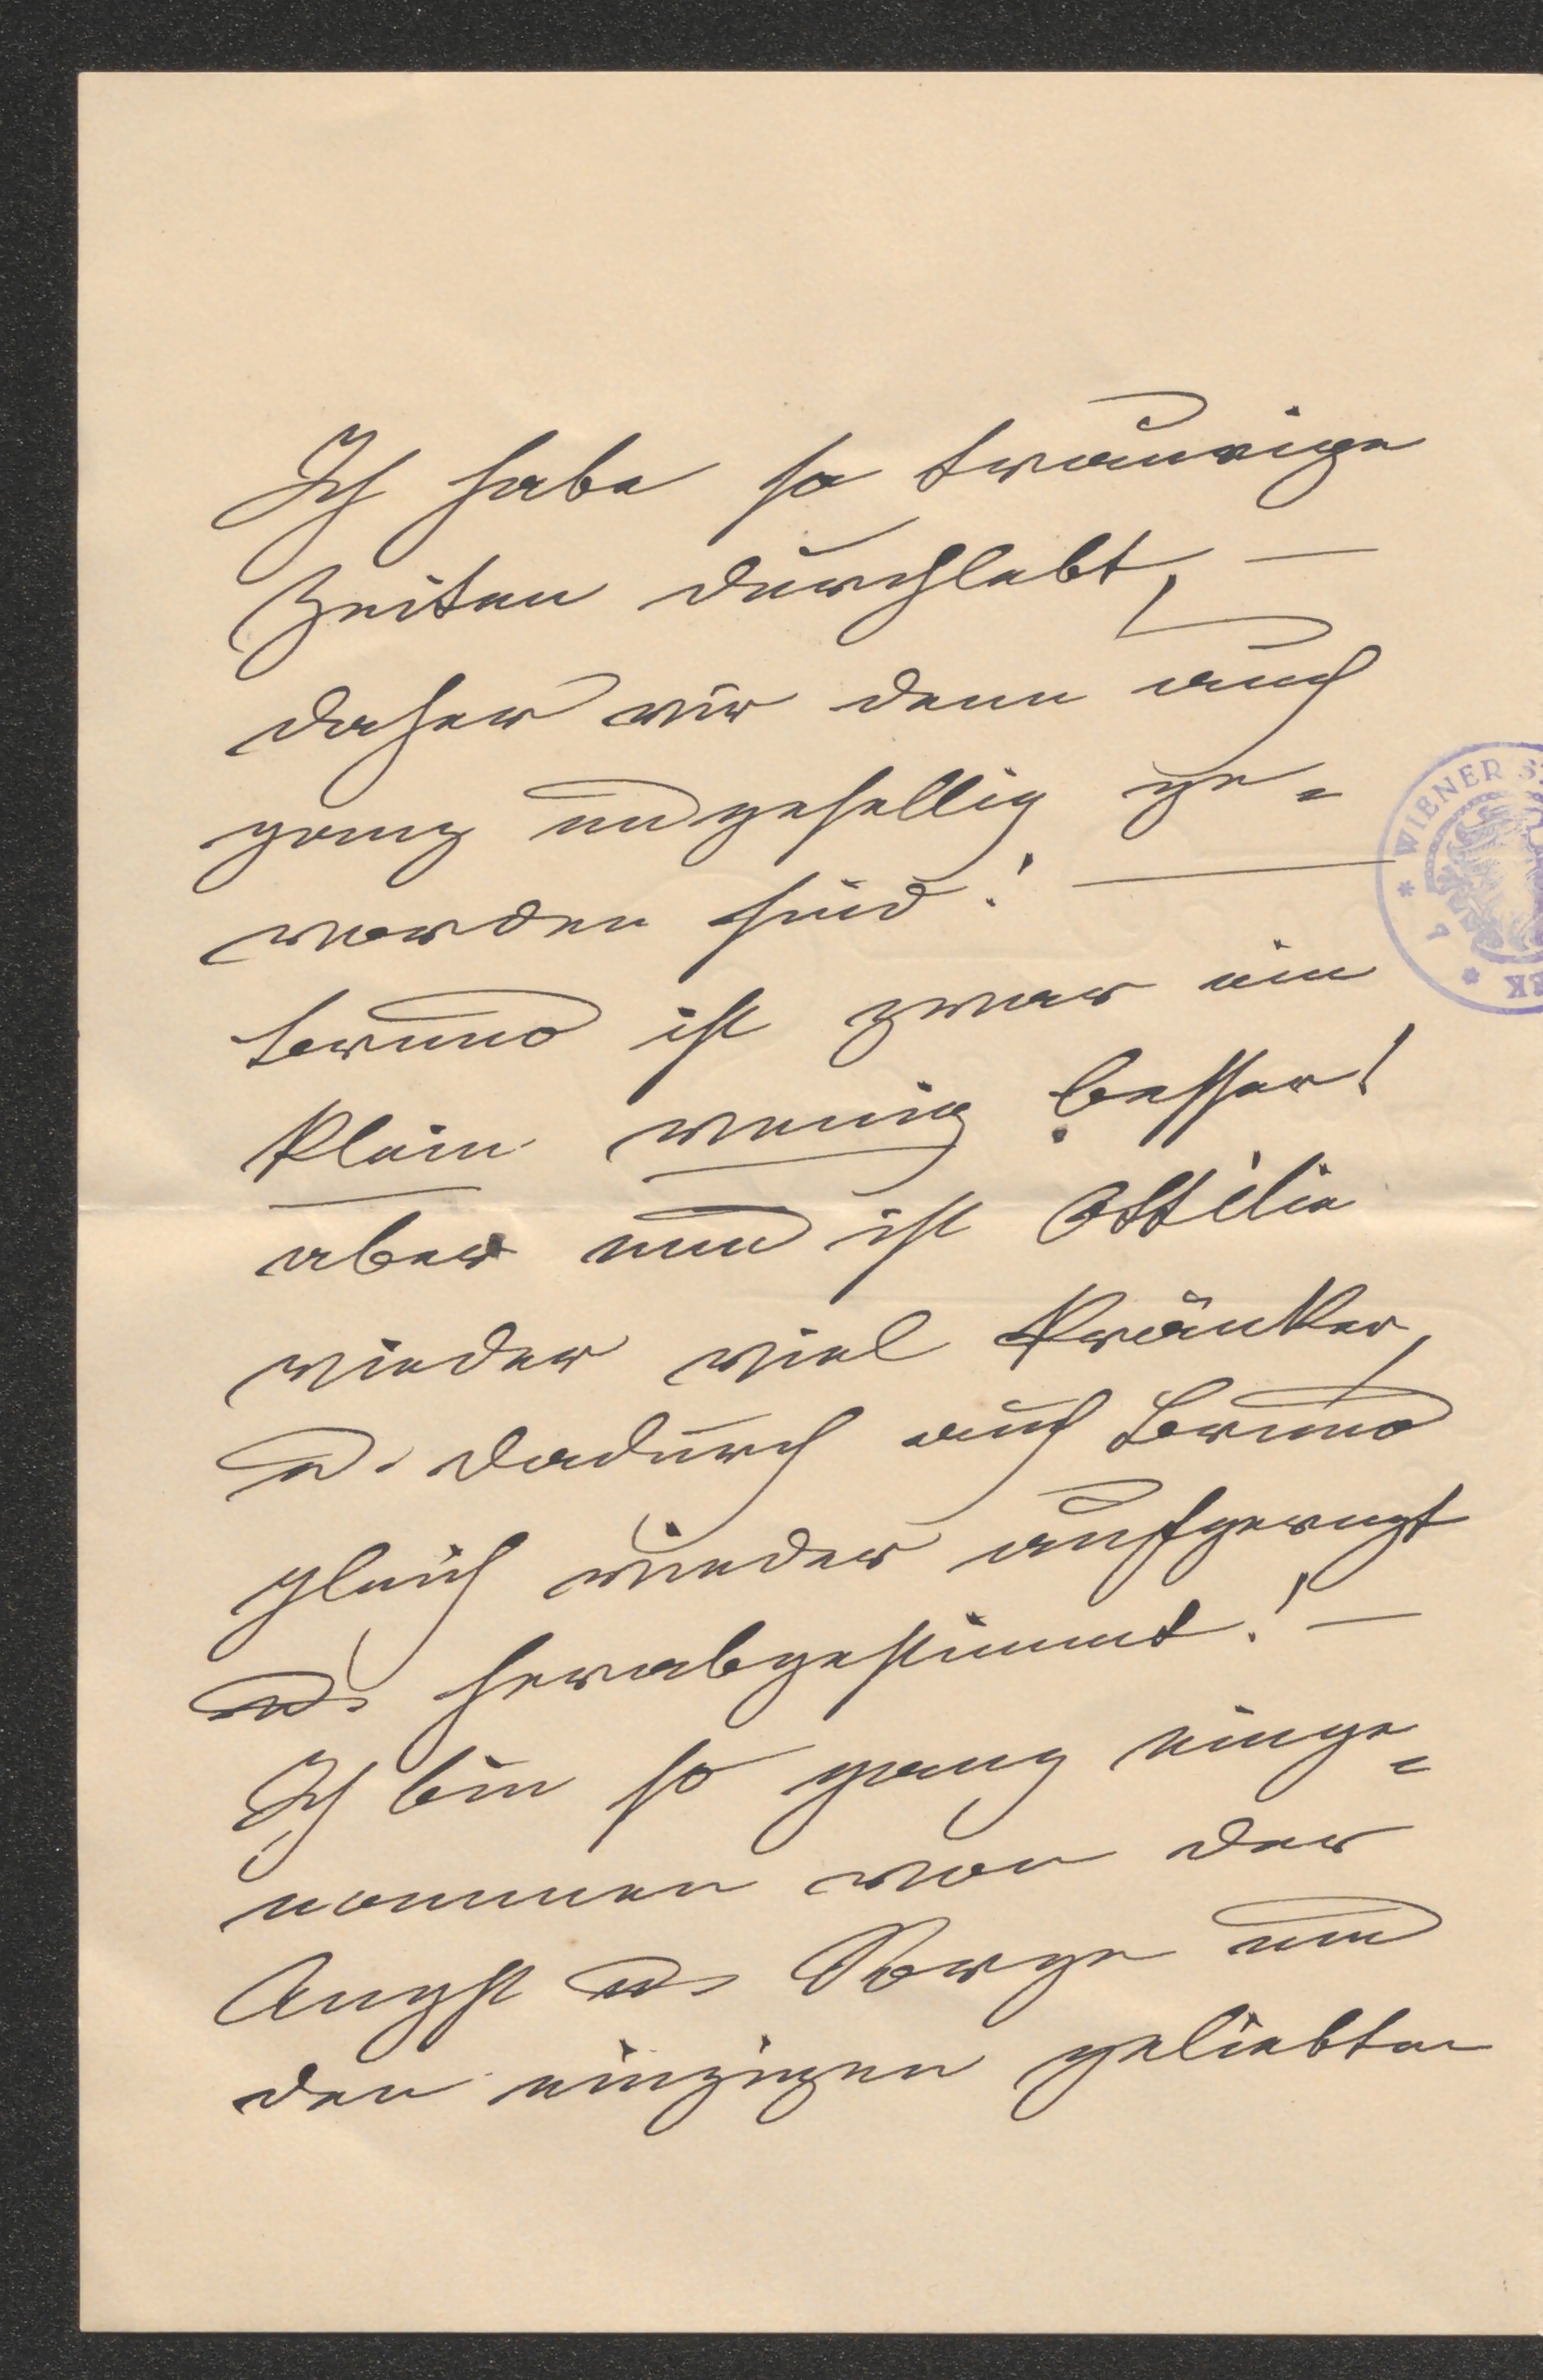 Ich habe so traurige
Zeiten durchlebt, —
daher wir denn auch
ganz ungesellig ge-
worden sind! —
Bruno ist zwar ein
klein wenig besser!
aber nun ist Ottilie
wieder viel kränker,
u. dadurch auch Bruno
gleich wieder aufgeregt
u. herabgestimmt! —
Ich bin so ganz einge-
nommen von der
Angst u. Sorge um
den einzigen geliebten
WIENER